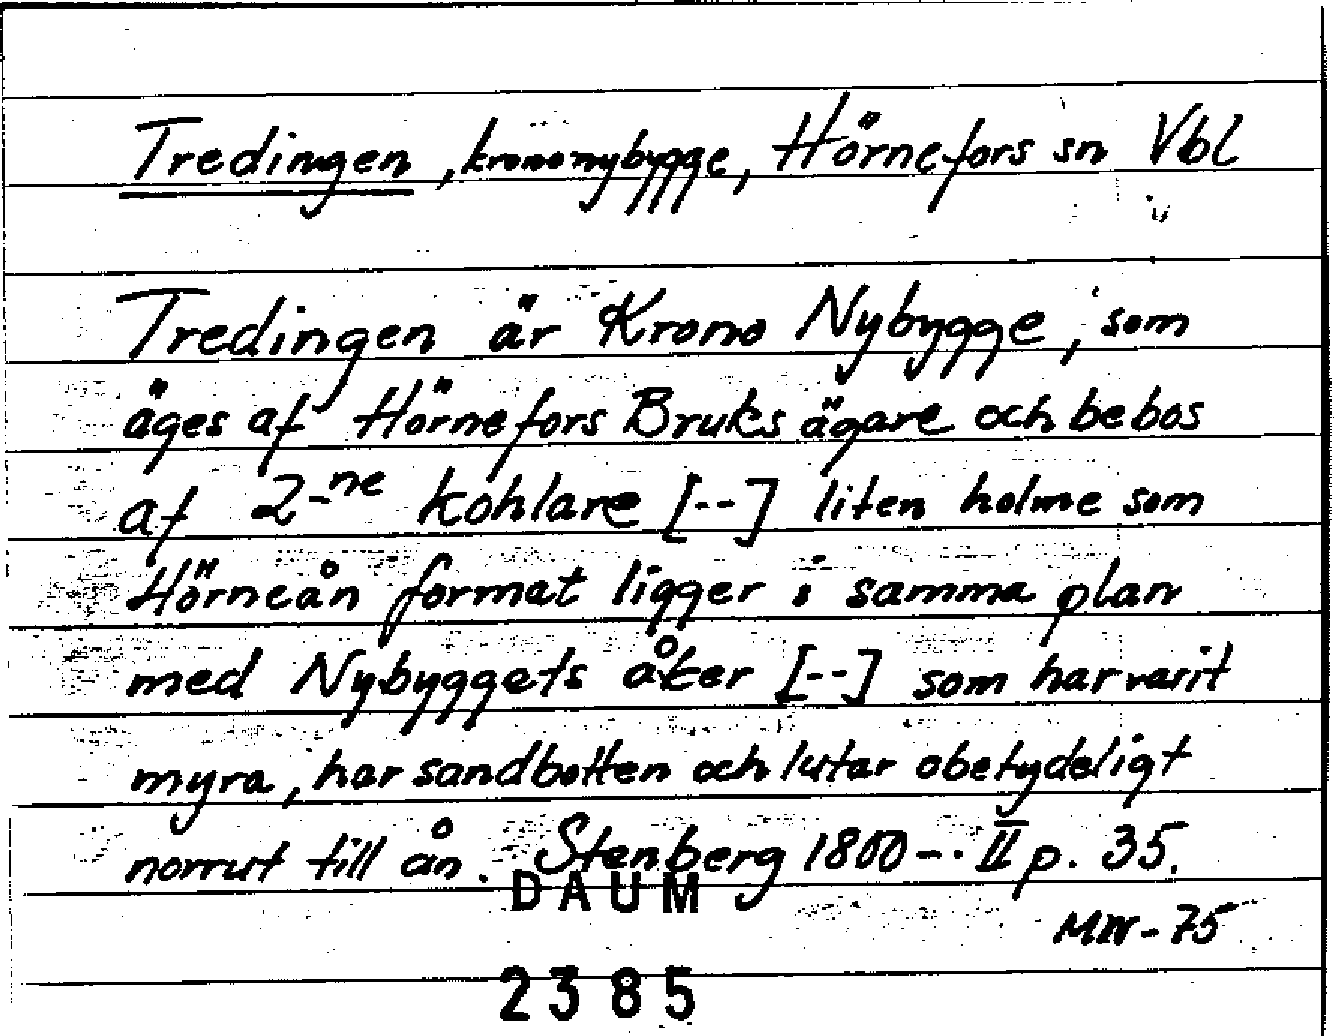 Tredingen, krononybygge, Hörnefors sn Vbl
Tredingen är Krono Nybygge, som
äges af Hörnefors Bruks ägare och bebos
af 2-ne kohlare [--] liten holme som
Hörneån format ligger i samma plan
med Nybyggets åker [--] som har varit
myra, har sandbotten och lutar obetydeligt
norrut till ån. Stenberg 1800-. II p. 35.
DAUM
MW-75
2385